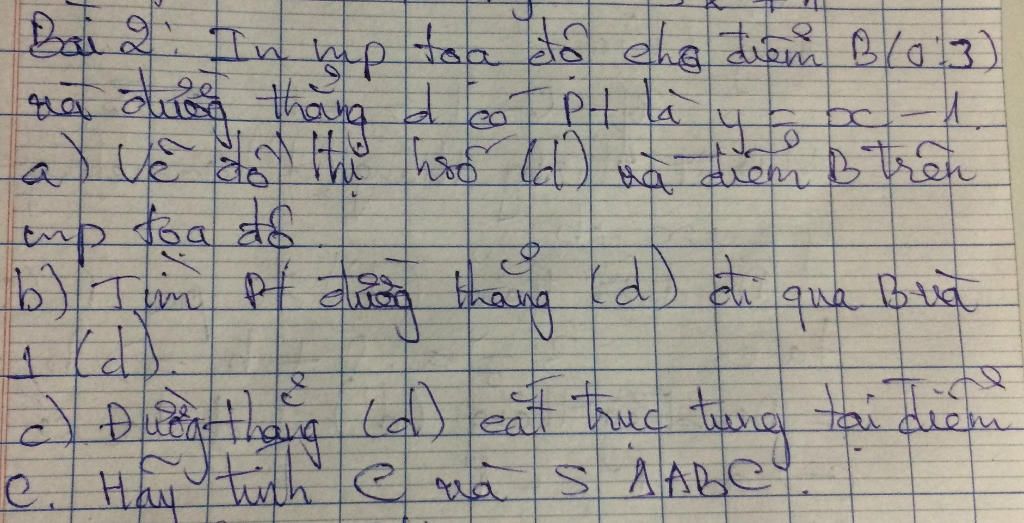 Bài 2: In mp tọa độ cho điểm B(0;3)
và đường thẳng d có Pt là y = x - 1.
a) Vẽ đồ thị hsố (d) và điểm B trên
mp tọa độ.
b) Tìm Pt đường thẳng (d) đi qua B và
⊥ (d).
c) Đường thẳng (d) cắt trục tung tại điểm
C. Hãy tính C và S ΔABC.